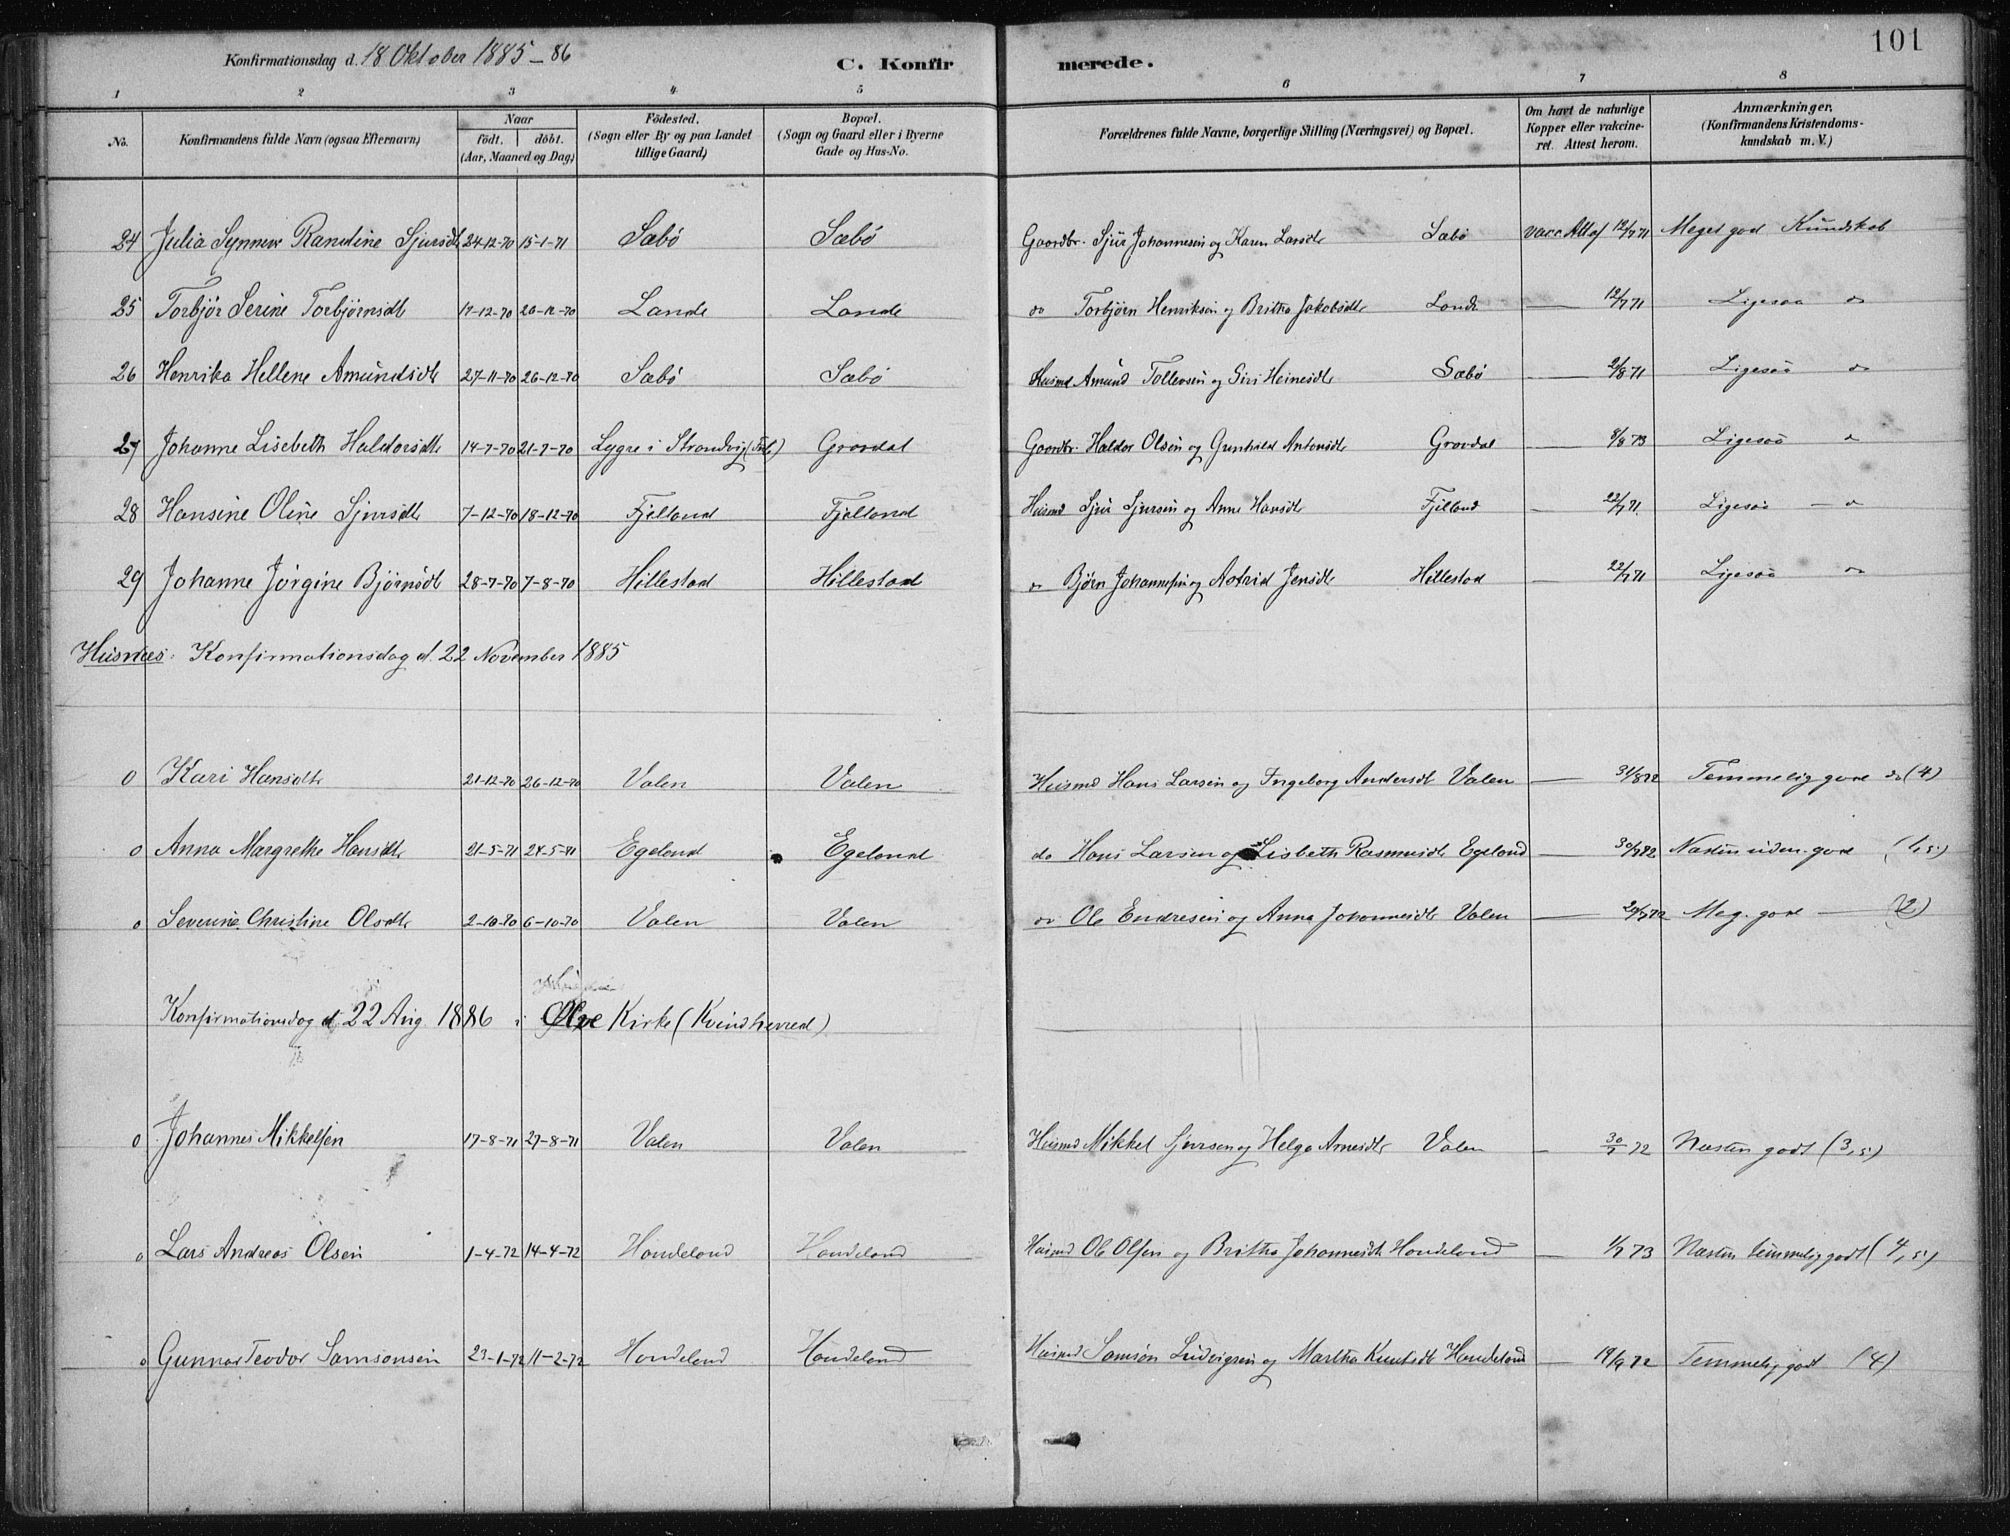 Konfirmationsdag d. 18 Oktober 1885-86 C. Konfir merede. 101
1 2 3 4 5 6 7 8
No. Konfirmandens fulde Navn (ogsaa Efternavn) Naar födt. döbt. (Aar, Maaned og Dag) Födested. (Sogn eller By og paa Landet tillige Gaard) Bopæl. (Sogn og Gaard eller i Byerne Gade og Hus-No. Forældrenes fulde Navne, borgerlige Stilling (Næringsvei) og Bopæl. Om havt de naturlige Kopper eller vakcineret. Attest herom. Anmærkninger. (Konfirmandens Kristendomskundskab m. V.)
24 Julia Synneve Randine Sjursdt 24-12-70 15-1-71 Sæbö Sæbö Gaardbr. Sjur Johannesen og Karen Larsdt Sæbö vacc. Att af 12/7 71 Meget god Kundskab
25 Torbjør Serine Torbjørnsdt 17-12-70 26-12-70 Lande Lande do Torbjørn Henriksen og Britha Jakobsdt Lande — 12/7 71 Ligesaa do
26 Henrika Hellene Amundsdt 27-11-70 26-12-70 Sæbö Sæbö Husmd Amund Tollevsen og Siri Heinesdt Sæbö — 2/8 71 Ligesaa do
27 Johanne Lisebeth Haldorsdt 14-7-70 21-7-70 Lygre i Strandvig Grovdal Gaardbr. Haldor Olsen og Gunhild Antonsdt Grovdal — 8/8 73 Ligesaa do
28 Hansine Oline Sjursdt 7-12-70 18-12-70 Fjelland Fjelland Husmd Sjur Sjursen og Anne Hansdt Fjelland — 22/7 71. Ligesaa — do
29 Johanne Jörgine Bjørnsdt 28-7-70 7-8-70 Hillestad Hillestad do Bjørn Johannesen og Astrid Jensdt Hillestad — 22/7 71 Ligesaa do
Husnæs: Konfirmationsdag d. 22 November 1885
0 Kari Hansdt 21-12-70 26-12-70 Valen Valen Husmd Hans Larsen og Ingeborg Andersdt Valen — 31/8 72 Temmelig gode do (4)
0 Anna Margrethe Hansdt 21-5-71 24-5-71 Egeland Egeland do Hans Larsen og Lisbeth Rasmusdt Egeland — 30/7 72 Næsten uden. gode (1,5)
0 Severine Christine Olsdt 2-10-70 6-10-70 Valen Valen do Ole Endresen og Anna Johannesdt Valen — 29/7 72 Meg. gode — (2)
Konfirmationsdag d. 22 Aug. 1886 i Ølve Kirke (Kvindherred)
0 Johannes Mikkelsen 17-8-71 27-8-71 Valen Valen Husmd Mikkel Sjursen og Helga Arnesdt Valen — 30/7 72 Næsten godt (3,5)
0 Lars Andreas Olsen 1-4-72 14-4-72 Handeland Handeland Husmd Ole Olsen og Britha Johannesdt Handeland — 1/7 73 Næsten temmelig godt (4,5)
0 Gunnar Teodor Samsonsen 23-1-72 11-2-72 Handeland Handeland Husmd Samson Ludvigsen og Martha Knutsdt Handeland — 19/9 72 Temmelig godt (4)